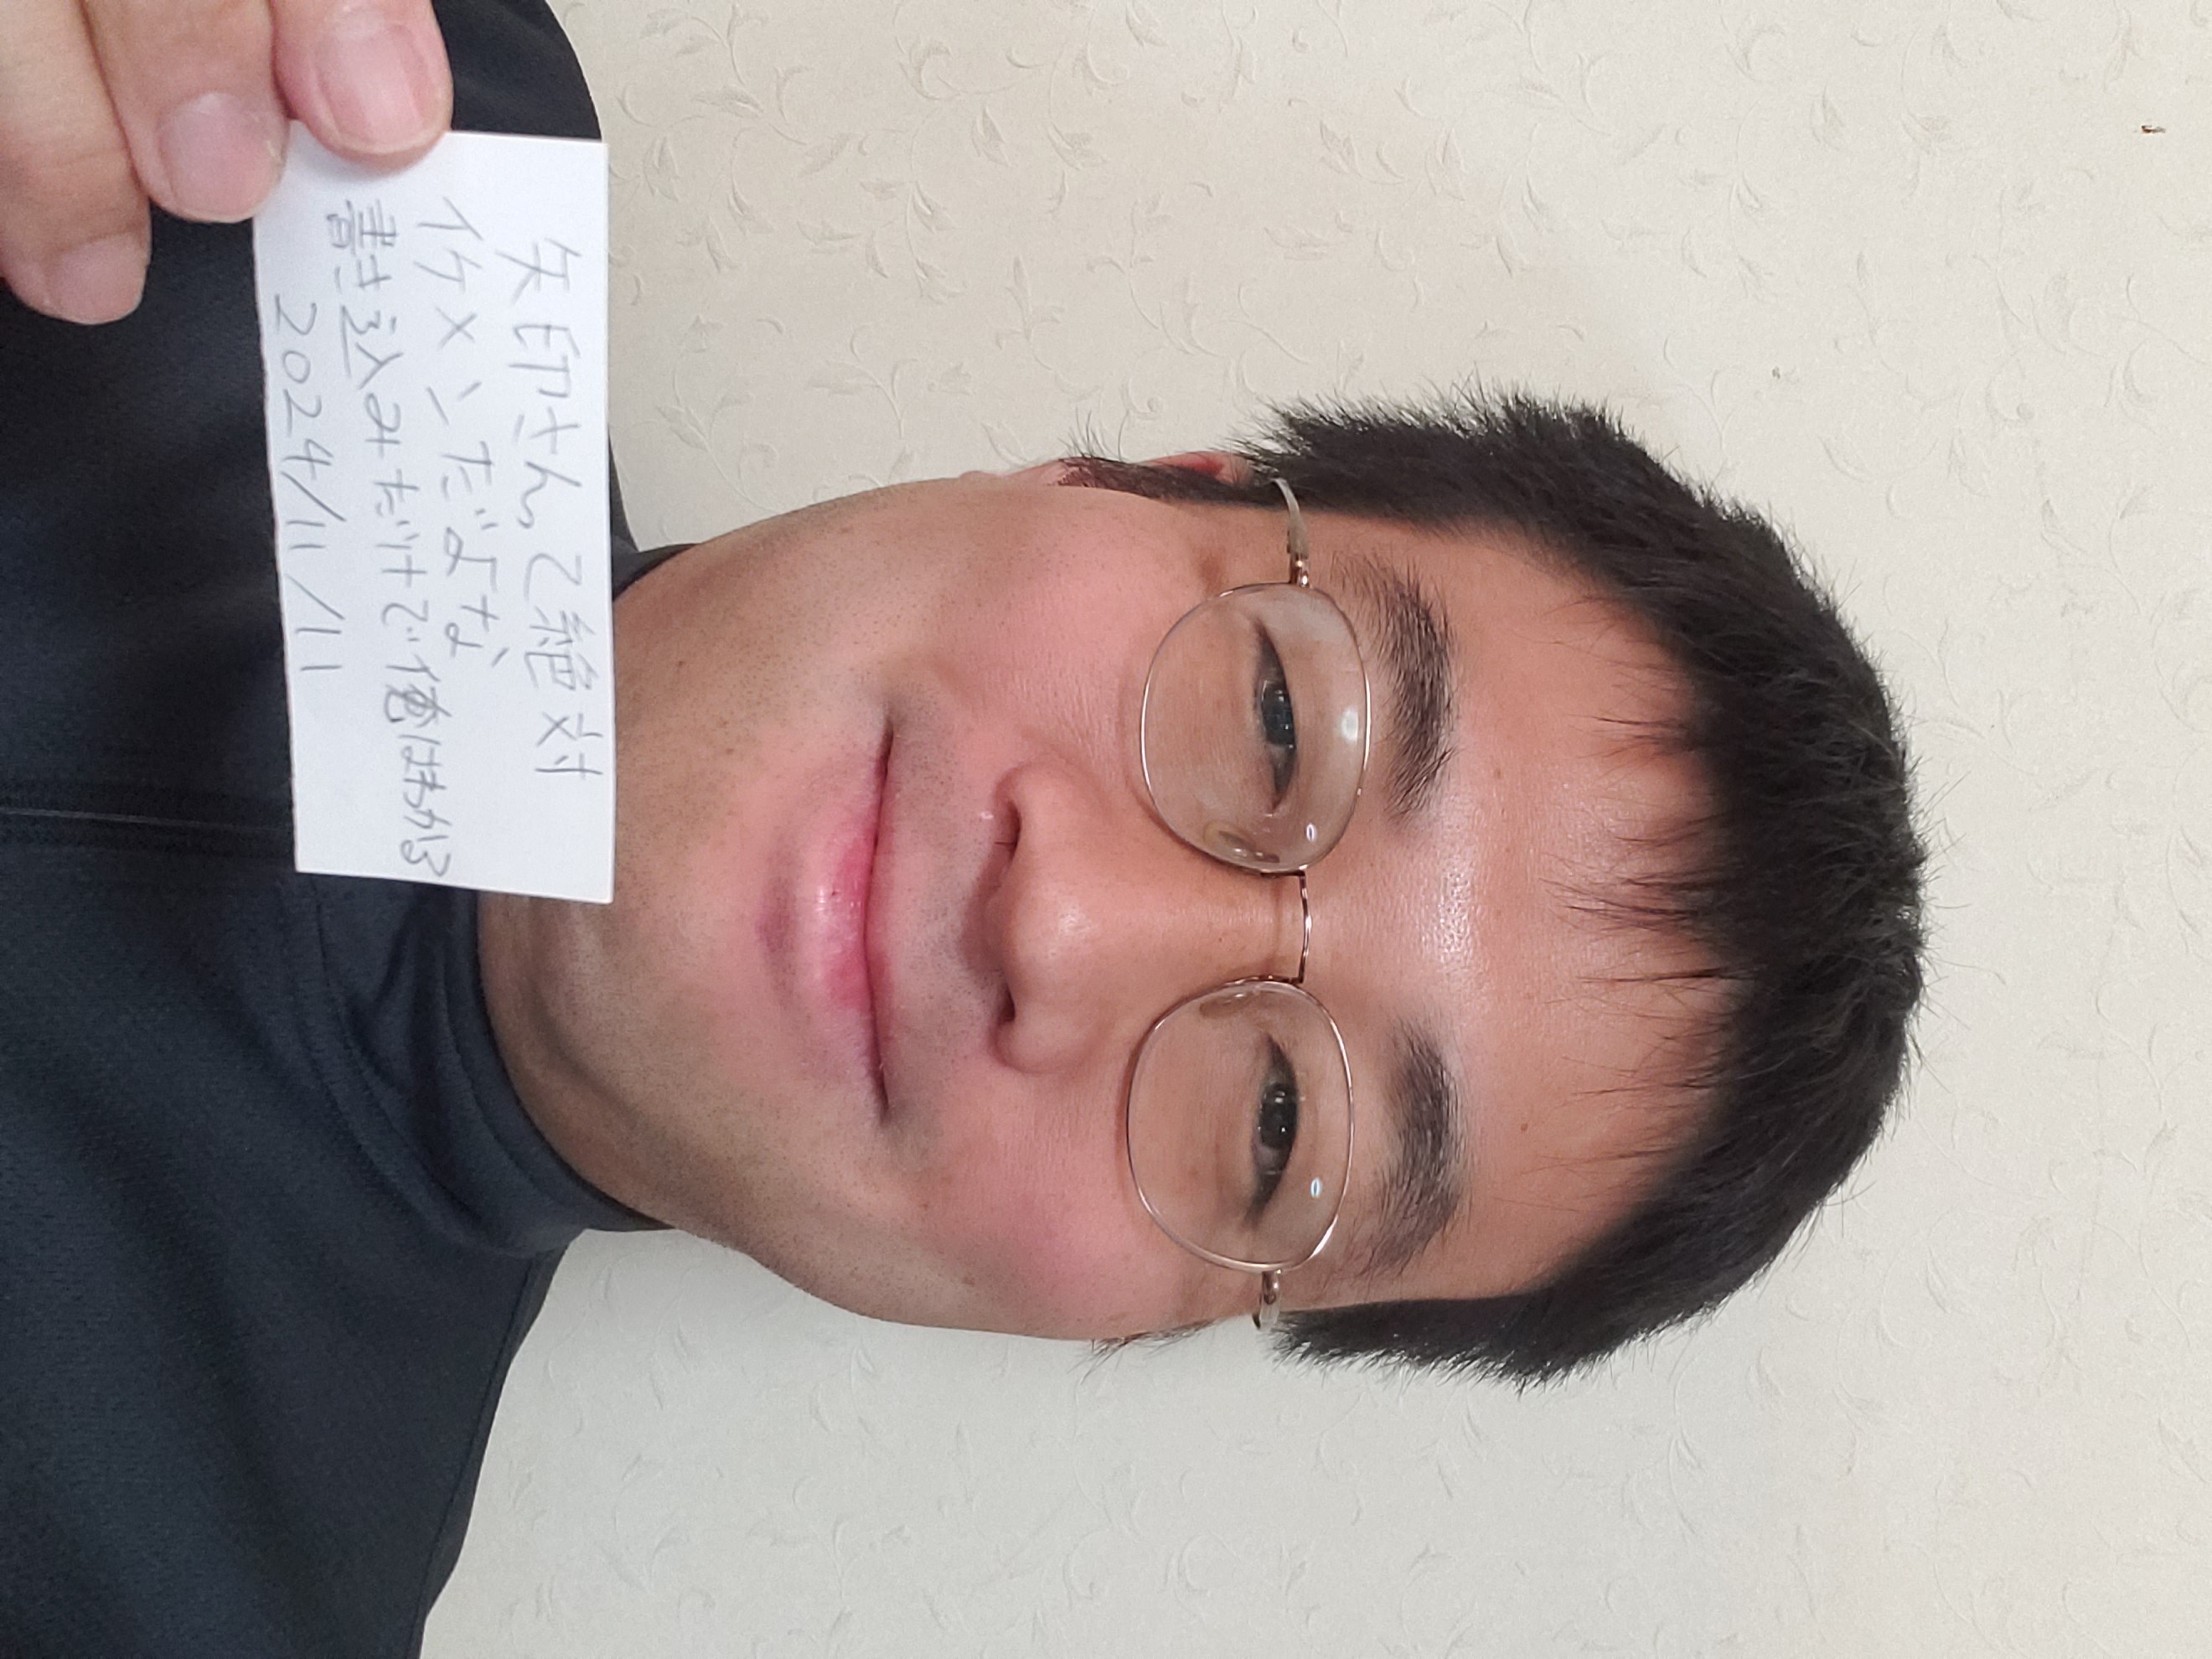 矢印さんって絶対
イケメンだよな
書き込みだけで俺はわかる
2024/11/11